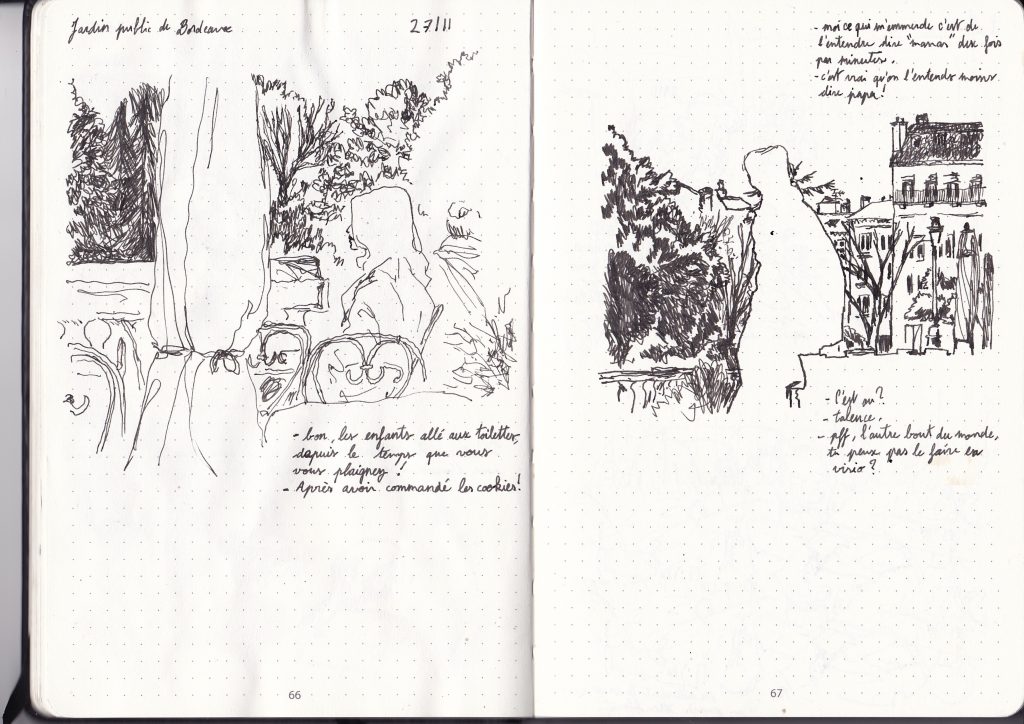 Jardin public de Bordeaux
27/11
- bon, les enfants allé aux toilettes,
depuis le temps que vous
vous plaignez !
- Après avoir commandé les cookies!
66
- moi ce qui m'emmerde c'est de
l'entendre dire "maman" dix fois
par minutes.
- c'est vrai qu'on l'entends moins
dire papa!
- C'est où?
- talence.
- pff, l'autre bout du monde,
tu peux pas le faire en
visio ?
67